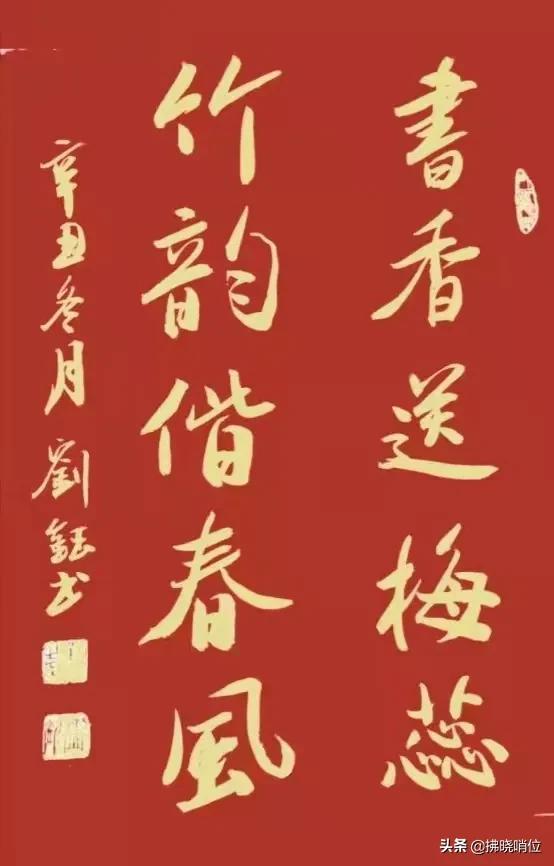 書香送梅蕊
竹韵偕春風
辛丑冬月 劉鈺书
头条 @拂晓哨位